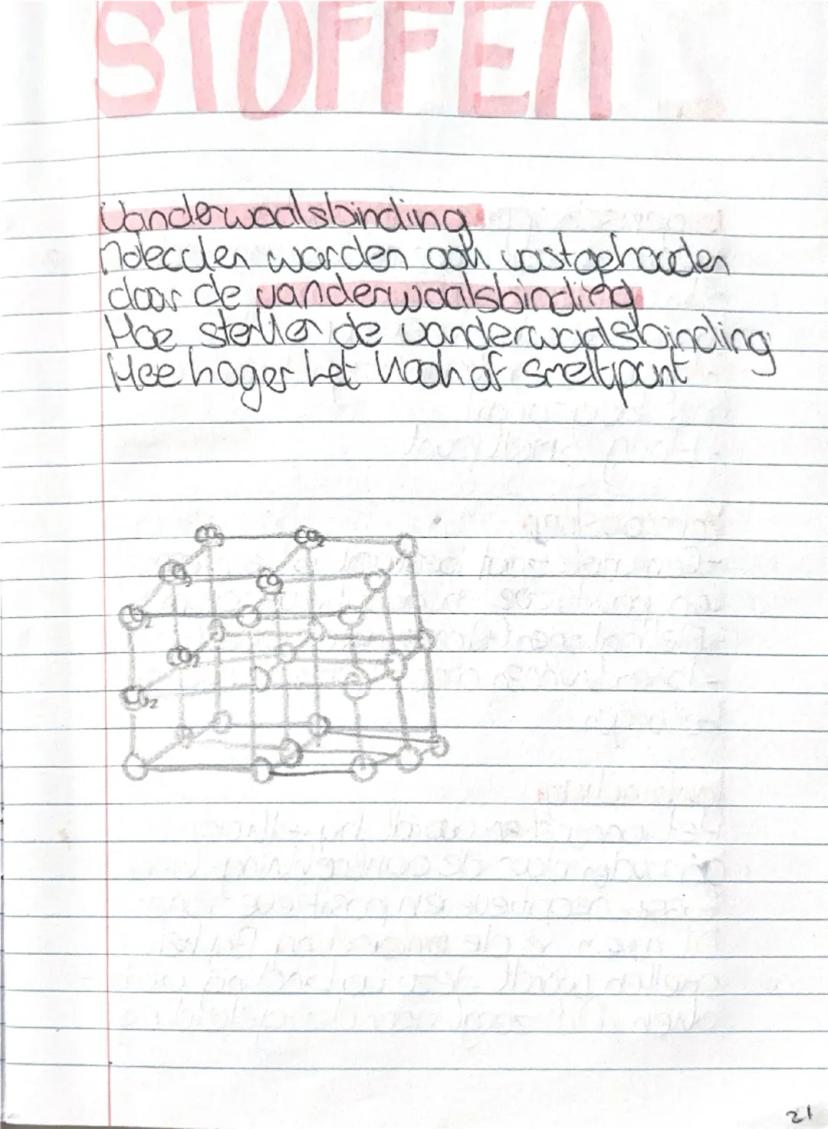 STOFFEN
Vanderwaalsbinding
Moleculen worden ook vastgehouden
door de vanderwaalsbinding
Hoe sterker de vanderwaalsbinding
Hoe hoger het kook of smeltpunt
CO₂ CO₂
CO₂ CO₂
CO₂
CO₂
CO₂
21